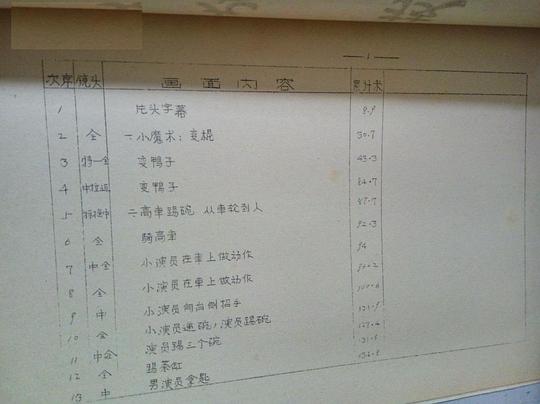 — 1 —
次序 镜头 画面内容 累计米
1 片头字幕 8.9
2 全 一小魔术：变棍 30.7
3 特—全 变鸭子 43.3
4 变鸭子
5 二高車踢碗 从車轮到人
6 全 騎高車 92.3
7 中全 小演员在車上做动作 94
8 全 小演员在車上做动作
9 中 小演员向台側招手
10 全 小演员递碗，演员踢碗
11 中全 演员踢三个碗
12 全 踢茶缸
13 中 男演员拿匙